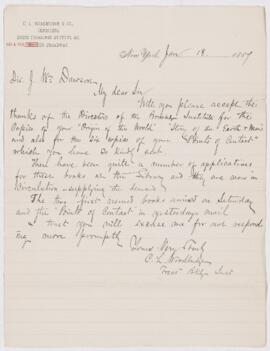 C. L. WOODBRIDGE & CO.
New York Jan 18. 1887
Dr. J. Wm Dawson
My dear Sir
Will you please accept the
thanks of the Directors of the Institute for the
Copies of your "Origin of the World" "Story of the Earth & Man"
and also for the six copies of your "Points of Contact"
which you have so kindly sent
There have been quite a number of applications
for these books at the Library and they are now in
Circulation supplying the demand
The two first named books arrived on Saturday
and the "Points of Contact" in yesterdays mail
I trust you will excuse me for not respond
ing more promptly
Yours Very Truly
C. L. Woodbridge